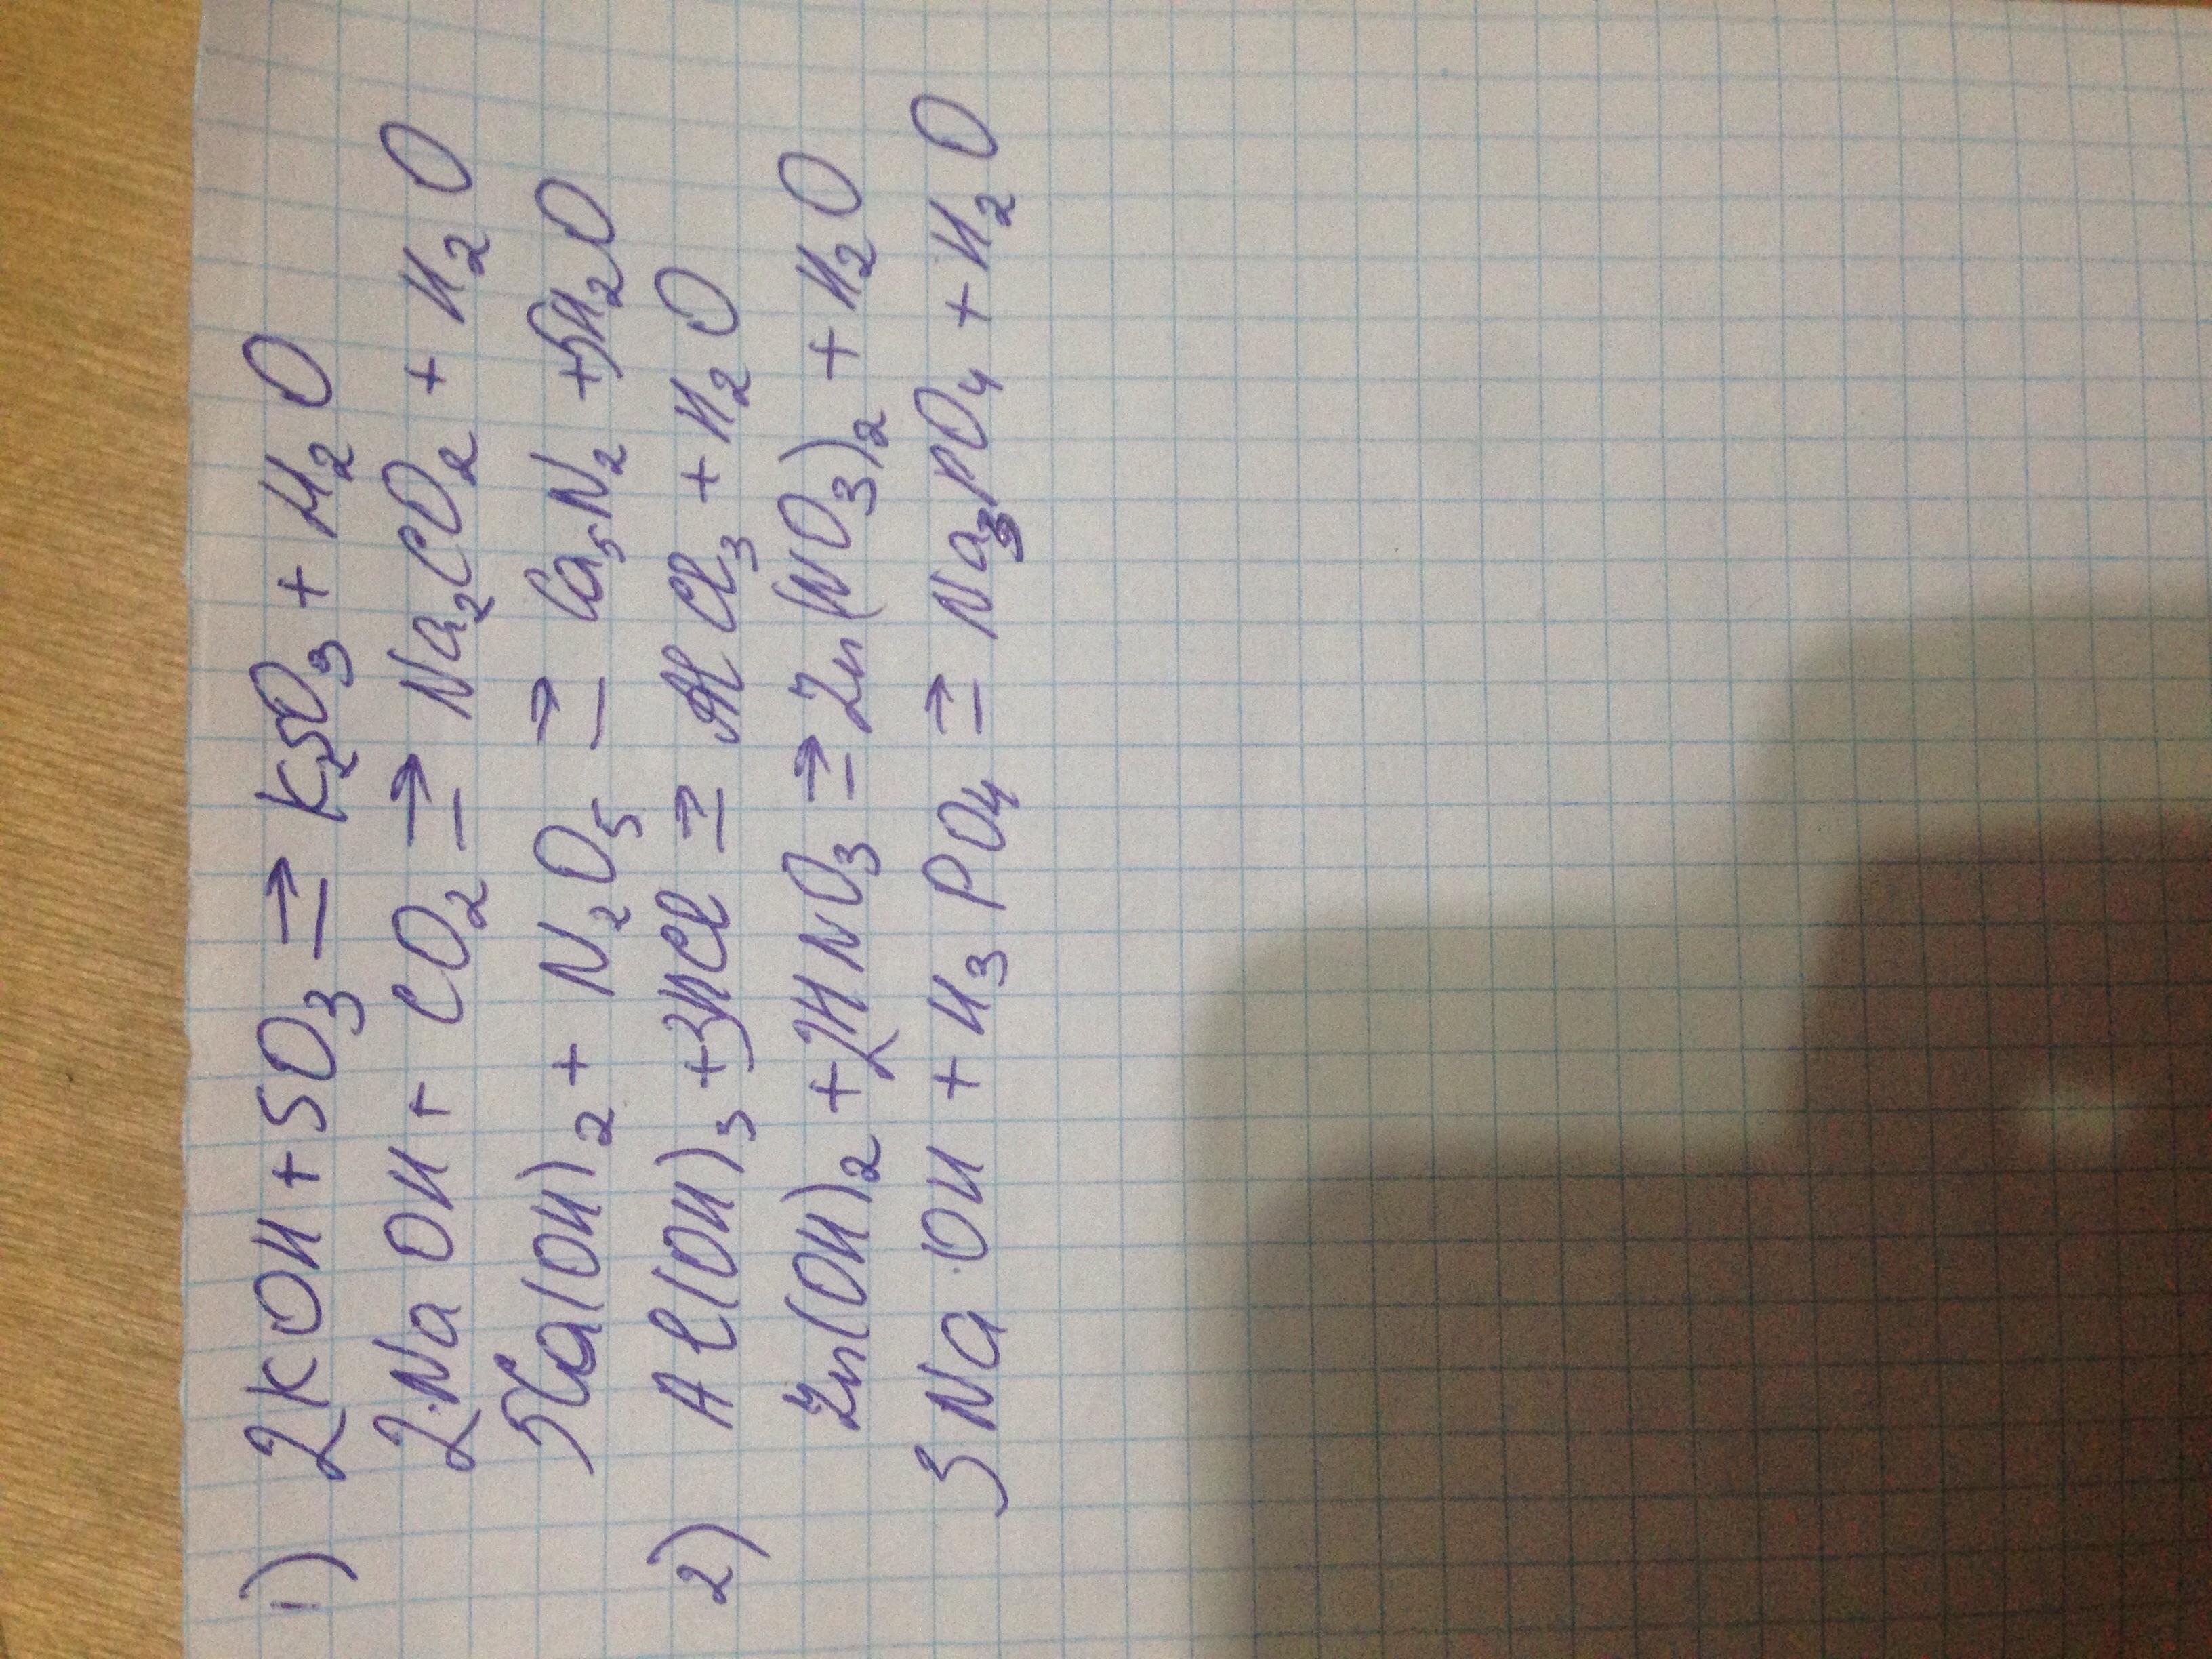 1) 2KOH + SO₃ ⇒ K₂SO₃ + H₂O
2NaOH + CO₂ ⇒ Na₂CO₂ + H₂O
5Ca(OH)₂ + N₂O₅ ⇒ Ca₅N₂ + 5H₂O
2) Al(OH)₃ + 3HCl ⇒ AlCl₃ + H₂O
Zn(OH)₂ + 2HNO₃ ⇒ Zn(NO₃)₂ + H₂O
3NaOH + H₃PO₄ ⇒ Na₃PO₄ + H₂O